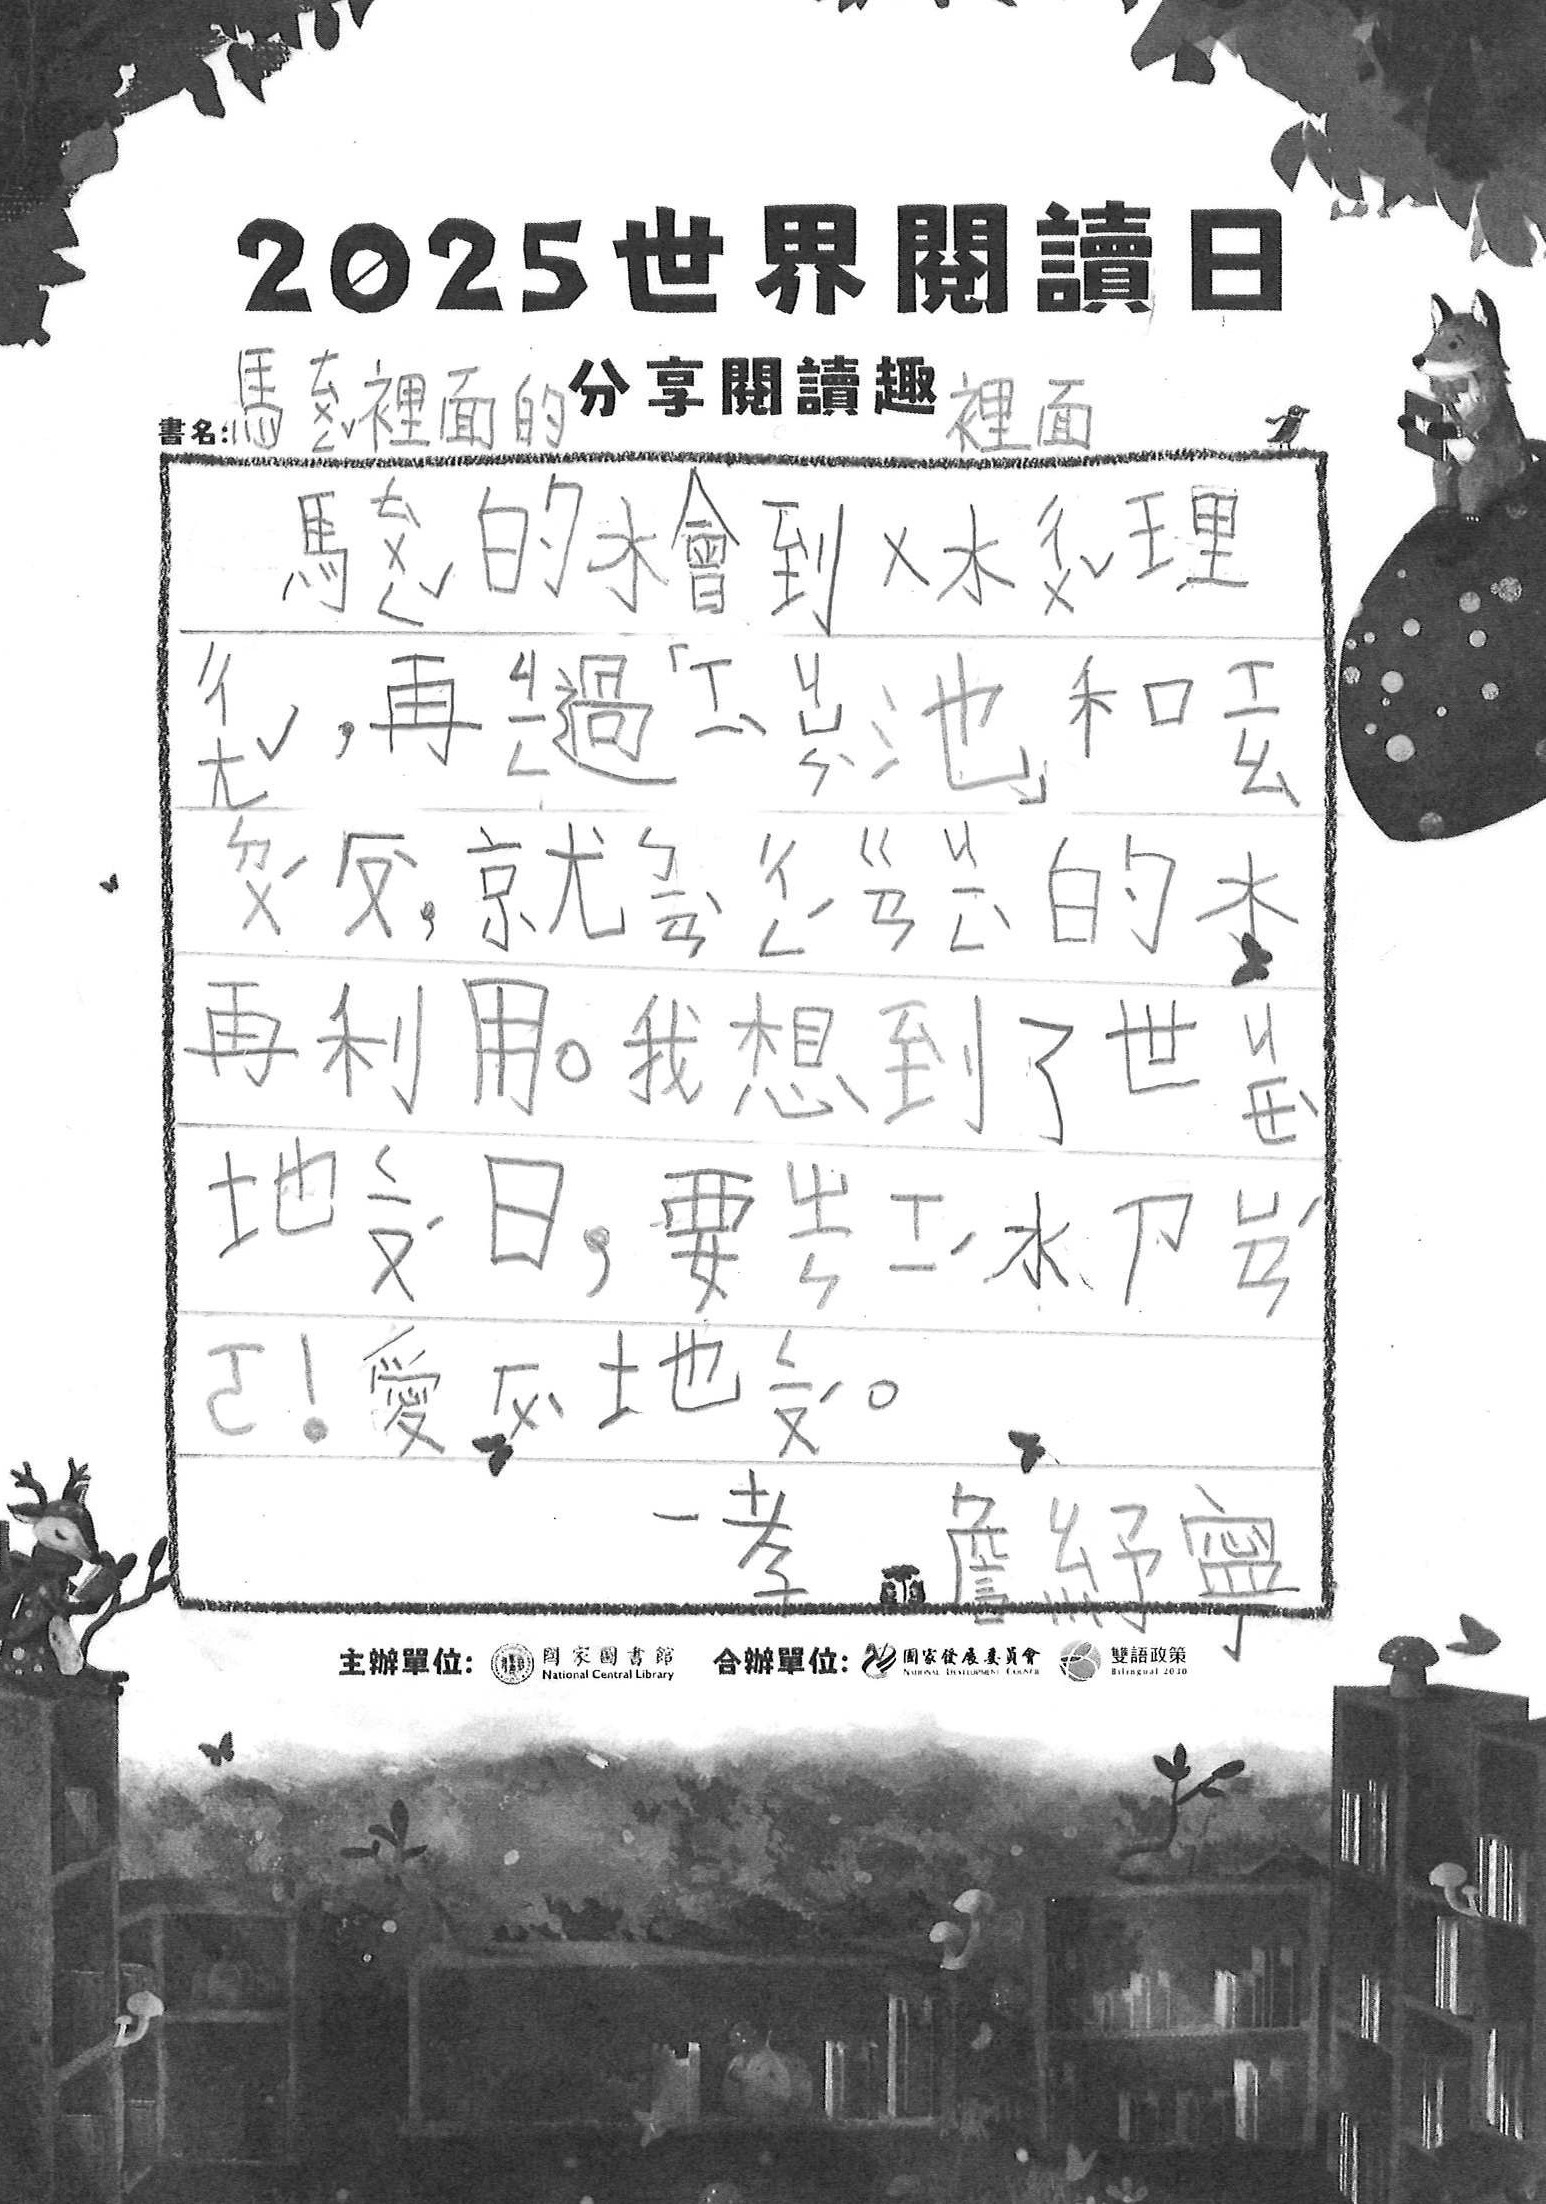 2025世界閱讀日
分享閱讀趣
書名:馬ㄊㄨㄥˇ裡面的裡面
馬ㄊㄨㄥˇ的水會到ㄨ水ㄔㄨˇ理
ㄔㄤˇ,再ㄐㄧㄥ過「ㄒㄧㄣˋㄐㄩㄣˋ池」和ㄒㄧㄠ
ㄉㄨˊㄏㄡˋ,就ㄅㄧㄢˋㄔㄥˊㄍㄢㄐㄧㄥˋ的水
再利用。我想到了世ㄐㄧㄝˋ
地ㄑㄧㄡˊ日,要ㄓㄣㄒㄧˊ水ㄗㄩㄢˊ
!愛ㄏㄨˋ地ㄑㄧㄡˊ。
一孝 詹紓寧
主辦單位: 國家圖書館 National Central Library 合辦單位: 國家發展委員會 NATIONAL DEVELOPMENT COUNCIL 雙語政策 Bilingual 2030